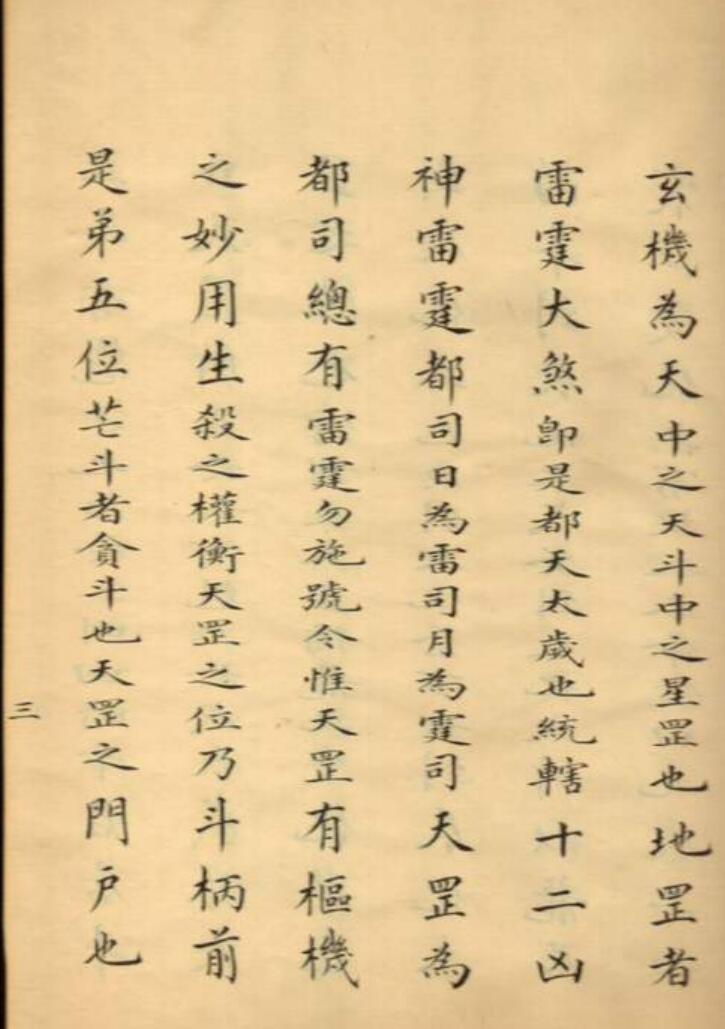 玄機為天中之天斗中之星罡也地罡者
雷霆大煞即是都天太歲也統轄十二凶
神雷霆都司日為雷司月為霆司天罡為
都司總有雷霆勿施號令惟天罡有樞機
之妙用生殺之權衡天罡之位乃斗柄前
是第五位芒斗者貪斗也天罡之門户也
三